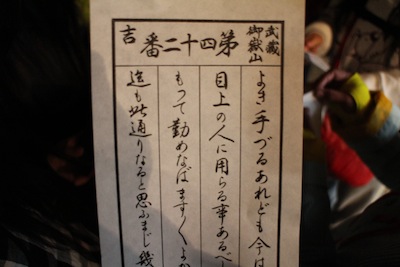 武蔵
御嶽山
第四十二番
吉
よき手づるあれども今は
目上の人に用らる事あるべし
もつて勤めなばます〱よか
迄も此通りなると思ふまじ幾